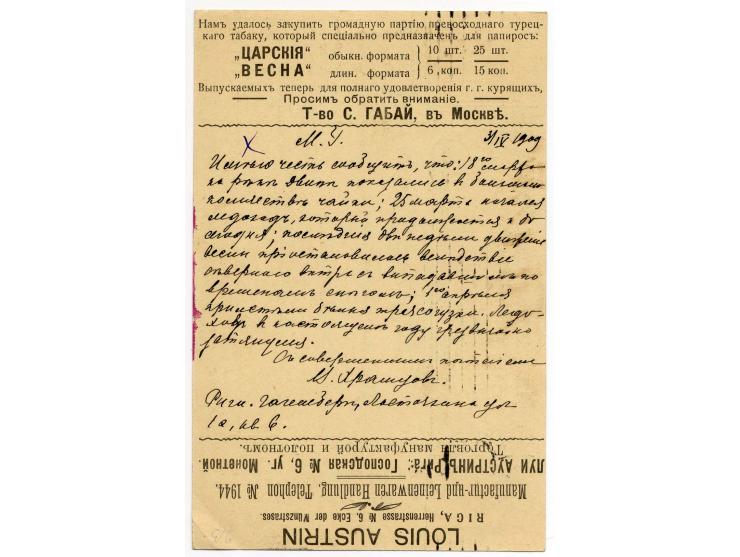 Намъ удалось закупить громадную партію превосходнаго турец-
каго табаку, который спеціально предназначенъ для папиросъ:
„ЦАРСКІЯ" обыкн. формата 10 шт. 25 шт.
„ВЕСНА" длин. формата 6 коп. 15 коп.
Выпускаемыхъ теперь для полнаго удовлетворенія г. г. курящихъ,
Просимъ обратить вниманіе.
Т-во С. ГАБАЙ, въ Москвѣ.
М. Г. 3/IV 1909
Имѣю честь сообщить, что: 18го марта
на рѣкѣ Двинѣ показались в большом
количествѣ чайки; 25 марта начался
ледоходъ, который продолжается и до
сегодня; послѣднія двѣ недѣли движеніе
весны пріостановилось вслѣдствіе
сѣвернаго вѣтра съ выпадавшимъ по
временамъ снѣгомъ; 1го апрѣля
прилетѣли бѣлыя трясогузки. Ледо-
ходъ в настоящемъ году чрезвычайно
затянулся.
Съ совершеннымъ почтеніем
Рига. Гагенсберг, Ласточкина ул
1а, кв. 6.
LOUIS AUSTRIN
RIGA, Herrenstrasse № 6, Ecke der Münzstrasse.
Manufactur- und Leinenwaren Handlung. Telephon № 1944.
ЛУИ АУСТРИНЪ, Рига: Господская № 6, уг. Монетной.
Торговля мануфактурой и полотномъ.